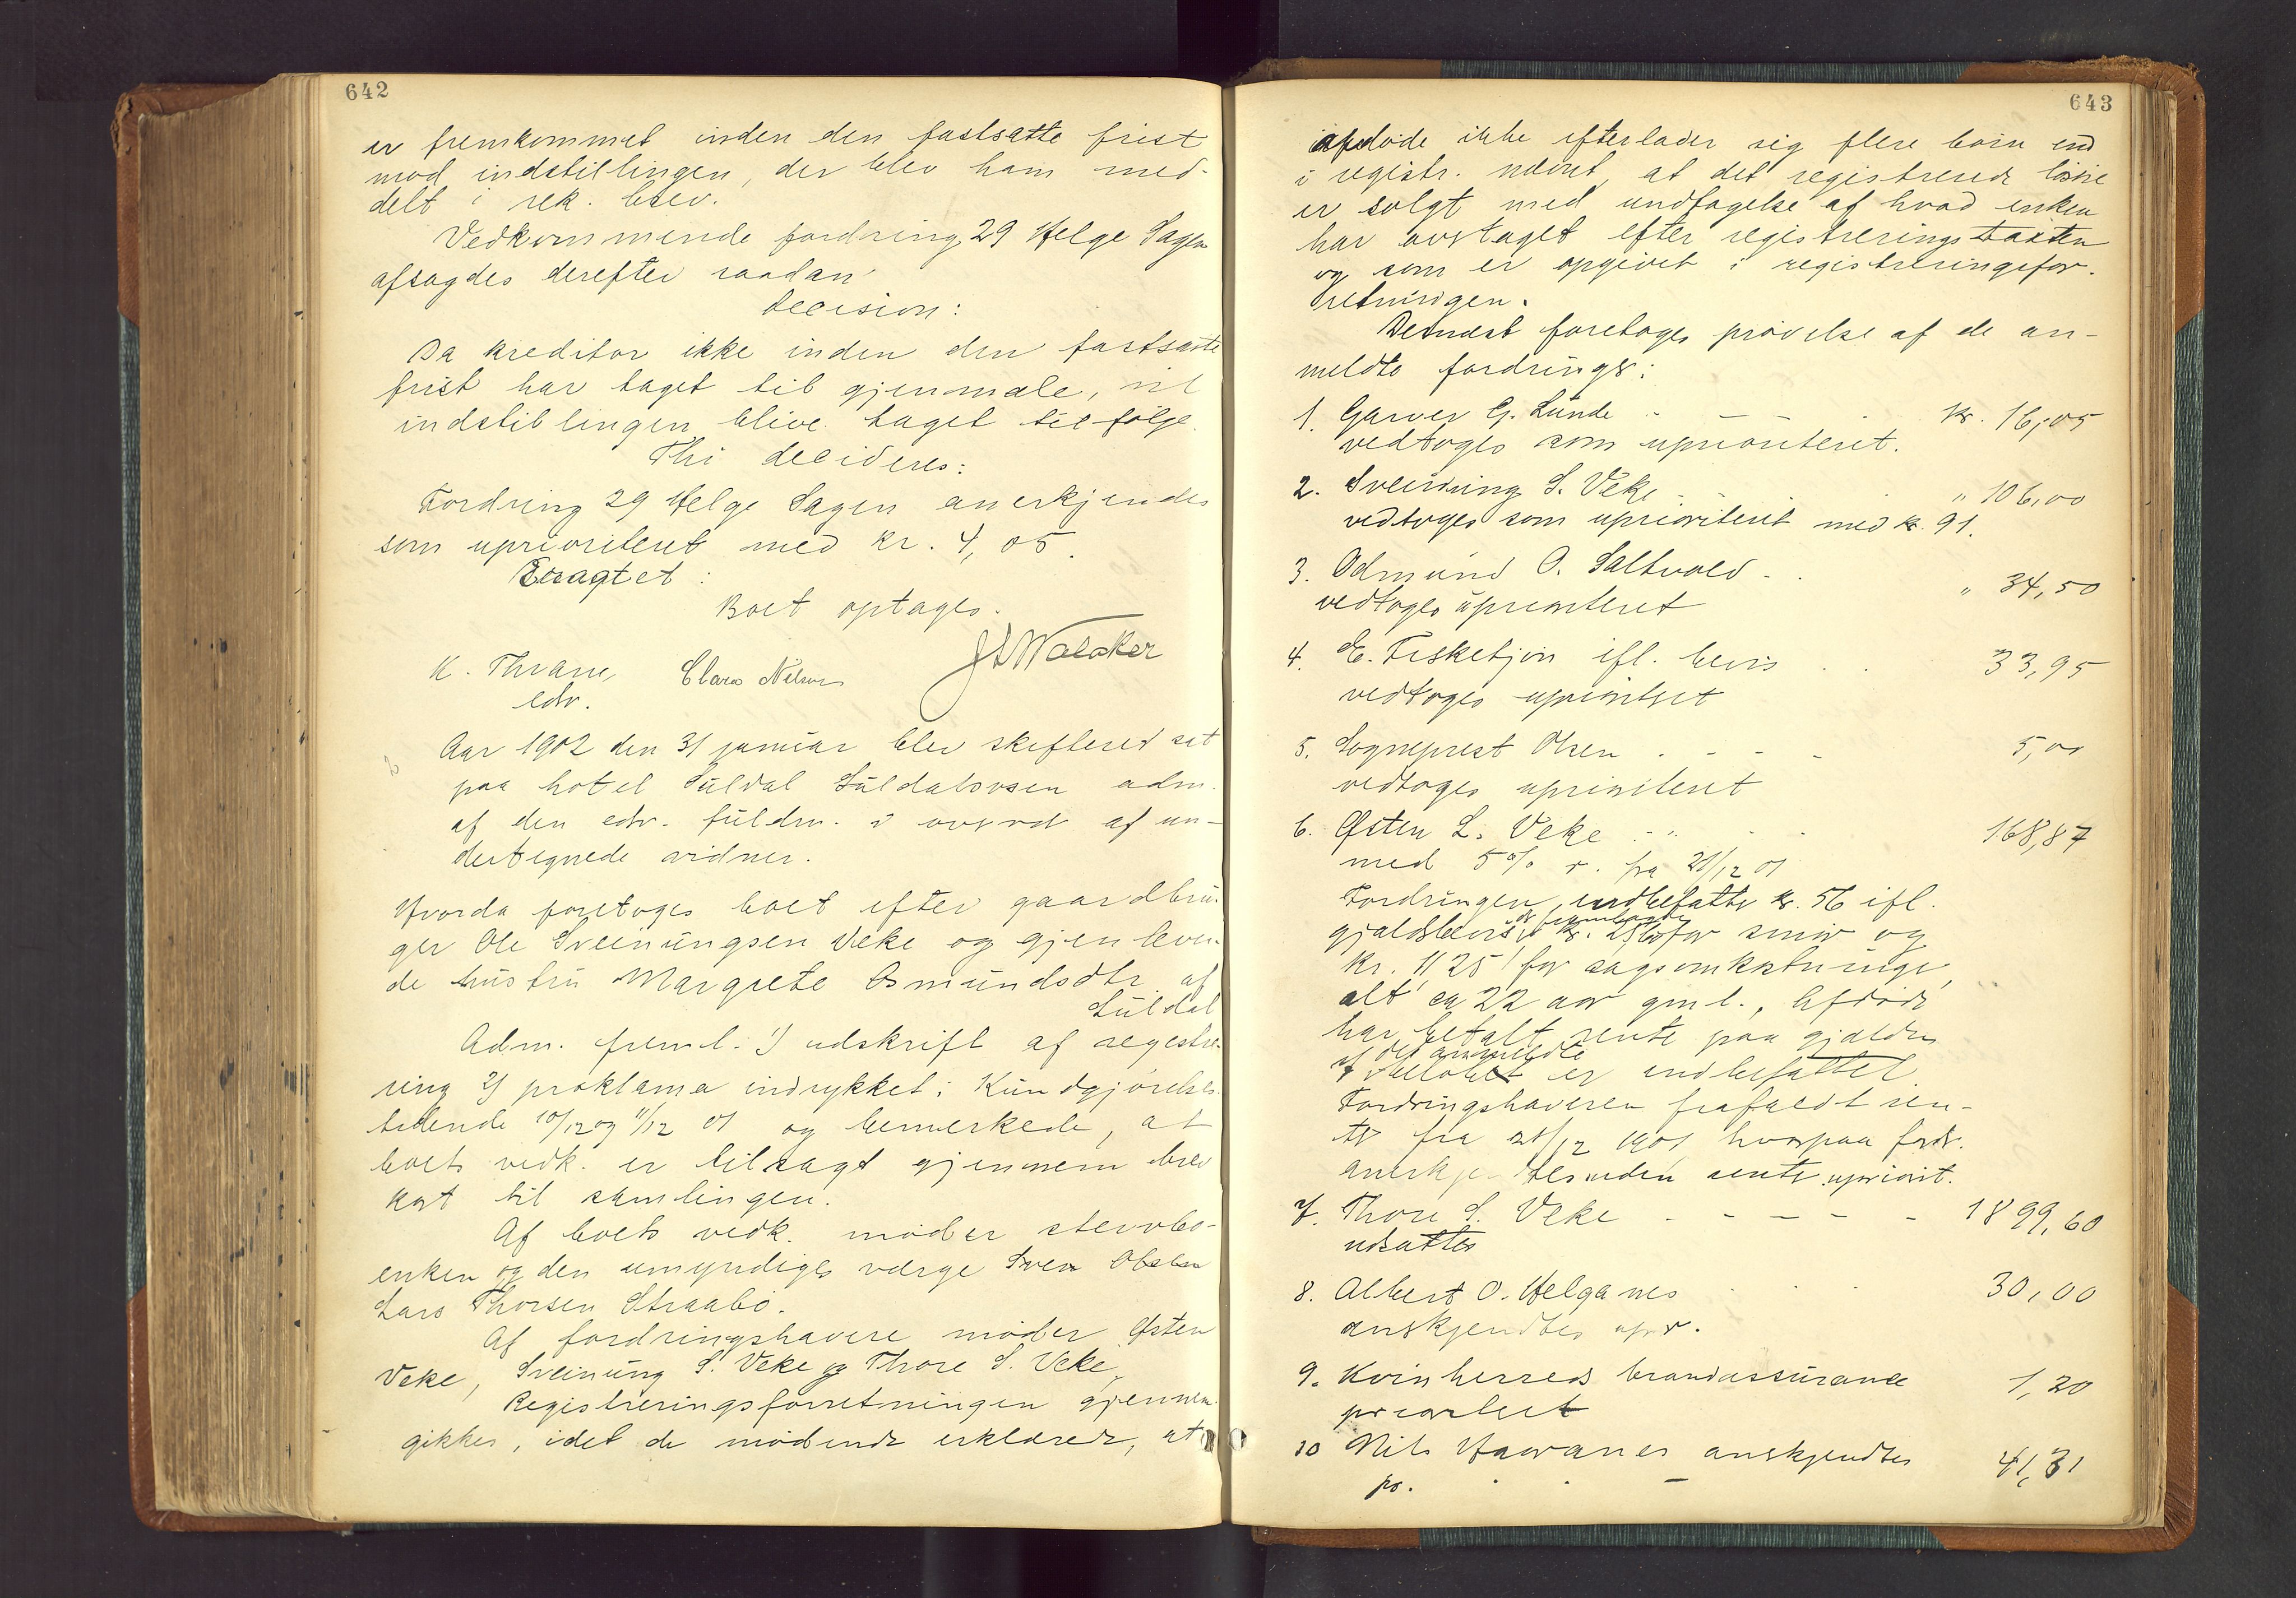 642
er fremkommet inden den fastsatte frist
mod indstillingen, der blev ham med-
delt i rek. brev.
Vedkommende fordring 29 Helge Sagen
afsagdes derefter saadan
decision:
Da kreditor ikke inden den fastsatte
frist har taget til gjenmæle, vil
indstillingen blive taget tilfølge.
Thi decideres:
Fordring 29 Helge Sagen anerkjendes
som uprioriteret med kr. 4,05.
Eragtet:
Boet optages.
K. Thrane, Clara Nelson JSWalaker
edv.
Aar 1902 den 31 januar blev skifteret sat
paa hotel Suldal Suldalsosen adm.
af den edv. fuldm. i overvær af un-
dertegnede vidner.
Hvorda foretoges boet efter gaardbru-
ger Ole Sveinungsen Veke og gjenleven-
de hustru Margrete Osmundsdtr. af
Suldal
Adm. freml. 1) udskrift af regestre-
ring 2) proklama indrykket i Kundgjørelses-
tidende 10/12 og 11/12 01 og bemerkede, at
boets vedk. er tilsagt gjennem brev
kort til samlingen.
Af boets vedk. møder stervbo-
enken og den umyndiges værge Sven Olsen
Lars Thorsen Straabø.
Af fordringshavere møder Østen
Veke, Sveinung S. Veke og Thore S. Veke,
Registreringsforretningen gjennem-
gikkes, idet de mødende erklærede, at
643
afdøde ikke efterlader sig flere børn end
i registr. nævnt, at det registrerede løsøre
er solgt med undtagelse af hvad enken
har overtaget efter registreringstaxten
og som er opgivet i registreringsfor-
retningen.
Dernæst foretoges prøvelse af de an-
meldte fordringer:
1. Garver G. Lunde - - - kr. 16,05
vedtoges som uprioriteret.
2. Sveinung S. Veke " 106,00
vedtoges som uprioriteret med kr. 91.
3. Odmund O. Saltvold - . " 34,50
vedtoges uprioriteret
4. E. Fisketjøn ifl. bevis . . 33,95
vedtoges uprioriteret
5. Sogneprest Olsen . - - - 5,00
vedtoges uprioriteret
6. Østen L. Veke - " - - 168,87
med 5% r. fra 21/12 01
Fordringen indbefatter kr. 56 ifl.
gjældsbevis kr. for smør og
kr. 11 25 for sagsomkostninger,
alt ca 22 aar gml., Afdøde
har betalt rente paa gjælden
af det anmeldte
beløbet er indbefattet.
Fordringshaveren frafaldt ren-
ter fra 21/12 1901 hvorpaa fordr.
anerkjendtes uden rente upriorit.
7. Thore S. Veke - - - - - 1899,60
udsattes
8. Albert O. Helganes . . 30,00
anerkjendtes upr.
9. Kvinherreds brandassurance 1,20
prioritert
10 Nils Havanes anerkjendtes 41,31
pr. . . -